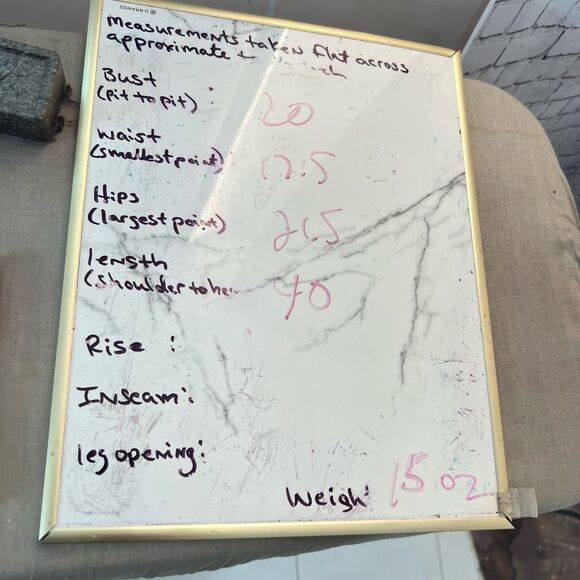 U BRANDS
Measurements taken flat across
approximate
Bust
(pit to pit) : 20
Waist
(smallest point) : 17.5
Hips
(largest point) 21.5
length
(shoulder to 40
Rise :
Inseam:
leg opening:
Weigh: 15 oz